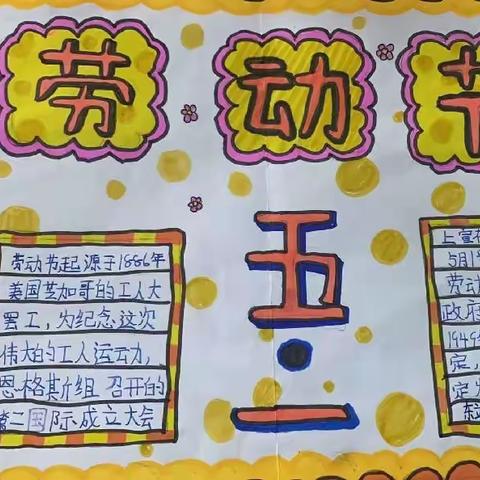 劳动节
五
·
一
劳动节起源于1886年
美国芝加哥的工人大
罢工,为纪念这次
伟大的工人运动,
恩格斯组召开的
第二国际成立大会
上宣
5月1
劳动
政府
1949
定,
定为